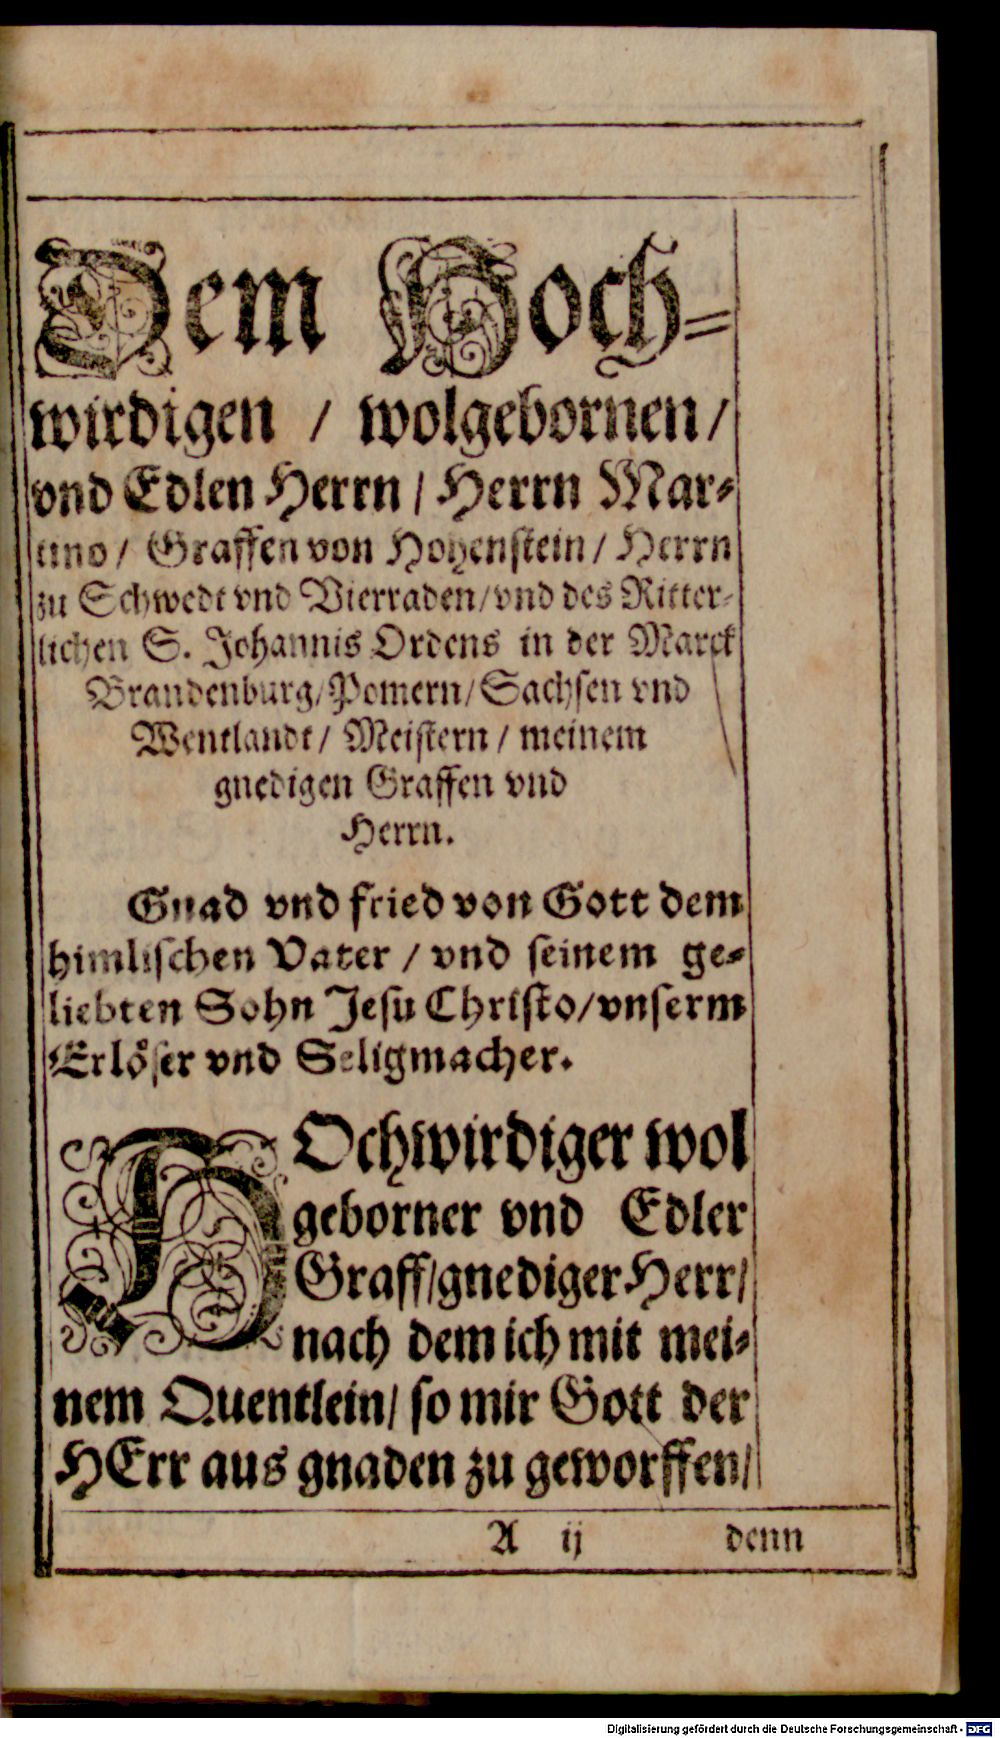 Dem Hoch-
wirdigen / wolgebornen /
vnd Edlen Herrn / Herrn Mar-
tino / Graffen von Hohenstein / Herrn
zu Schwedt vnd Vierraden / vnd des Ritter-
lichen S. Johannis Ordens in der Marck
Brandenburg / Pomern / Sachsen vnd
Wentlandt / Meistern / meinem
gnedigen Graffen vnd
Herrn.
Gnad vnd fried von Gott dem
himlischen Vater / vnd seinem ge-
liebten Sohn Jesu Christo / vnserm
Erlöser vnd Seligmacher.
HOchwirdiger wol
geborner vnd Edler
Graff / gnediger Herr /
nach dem ich mit mei-
nem Quentlein / so mir Gott der
HErr aus gnaden zu geworffen /
A ij denn
Digitalisierung gefördert durch die Deutsche Forschungsgemeinschaft - DFG